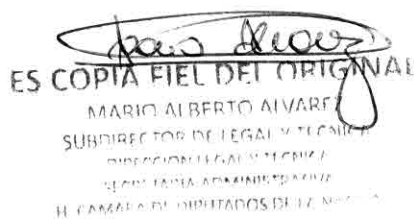 ES COPIA FIEL DEL ORIGINAL
MARIO ALBERTO ALVAREZ
SUBDIRECTOR DE LEGAL Y TECNICA
DIRECCION LEGAL Y TECNICA
SECRETARIA ADMINISTRATIVA
H. CAMARA DE DIPUTADOS DE LA